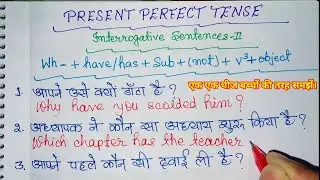 PRESENT PERFECT TENSE
Interrogative Sentences-II
Wh- + have/has + Sub + (not) + V³ + object
एक एक चीज बच्चों की तरह समझें।
1. आपने उसे क्यों डाँटा है ?
Why have you scolded him ?
2. अध्यापक ने कौन सा अध्याय शुरू किया है ?
Which chapter has the teacher
3. आपने पहले कौन सी दवाई ली है ?